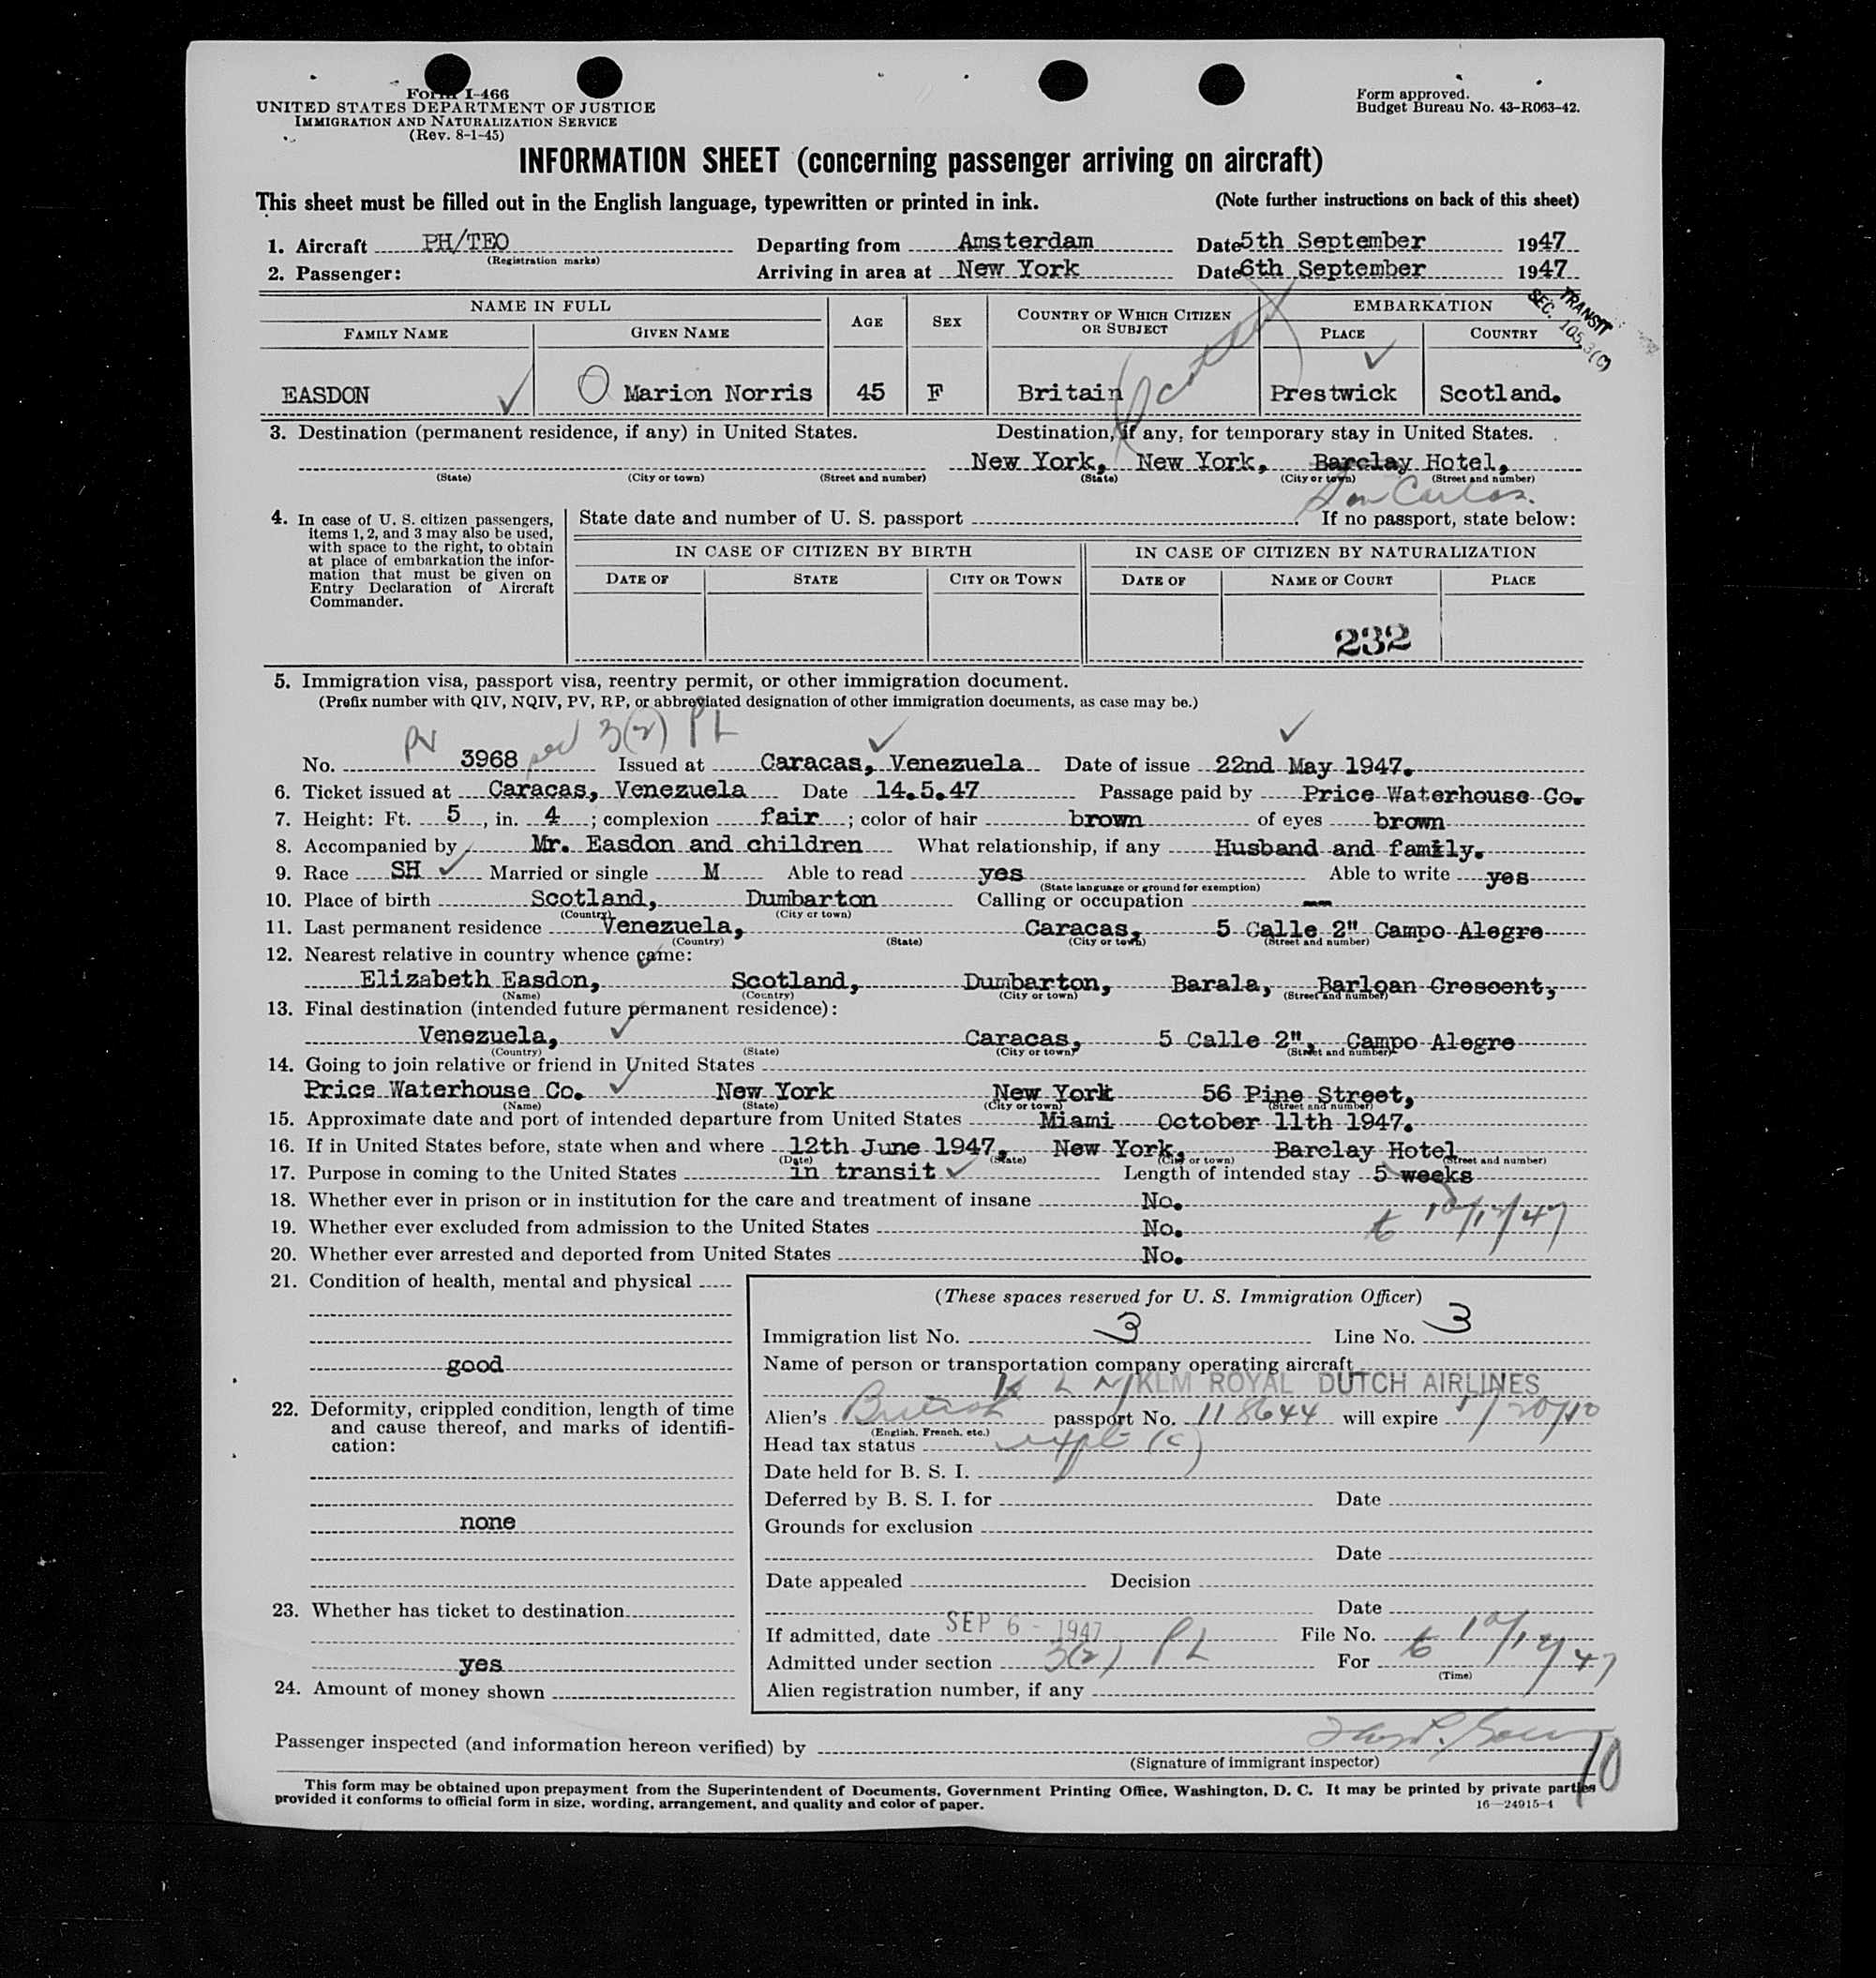 Form I-466
UNITED STATES DEPARTMENT OF JUSTICE
IMMIGRATION AND NATURALIZATION SERVICE
(Rev. 8-1-45)
Form approved.
Budget Bureau No. 43-R063-42.
INFORMATION SHEET (concerning passenger arriving on aircraft)
This sheet must be filled out in the English language, typewritten or printed in ink. (Note further instructions on back of this sheet)
1. Aircraft PH/TEO Departing from Amsterdam Date 5th September 1947
(Registration marks)
2. Passenger: Arriving in area at New York Date 6th September 1947
TRANSIT
SEC. 105.3(C)
NAME IN FULL AGE SEX COUNTRY OF WHICH CITIZEN OR SUBJECT EMBARKATION
FAMILY NAME GIVEN NAME PLACE COUNTRY
EASDON Marion Norris 45 F Britain Prestwick Scotland.
3. Destination (permanent residence, if any) in United States. Destination, if any, for temporary stay in United States.
New York, New York, Barclay Hotel,
(State) (City or town) (Street and number) (State) (City or town) (Street and number)
Don Carlos.
4. In case of U. S. citizen passengers, items 1, 2, and 3 may also be used, with space to the right, to obtain at place of embarkation the information that must be given on Entry Declaration of Aircraft Commander.
State date and number of U. S. passport If no passport, state below:
IN CASE OF CITIZEN BY BIRTH IN CASE OF CITIZEN BY NATURALIZATION
DATE OF STATE CITY OR TOWN DATE OF NAME OF COURT PLACE
232
5. Immigration visa, passport visa, reentry permit, or other immigration document.
(Prefix number with QIV, NQIV, PV, RP, or abbreviated designation of other immigration documents, as case may be.)
PV 3(2) PL
No. 3968 Issued at Caracas, Venezuela Date of issue 22nd May 1947.
6. Ticket issued at Caracas, Venezuela Date 14.5.47 Passage paid by Price Waterhouse Co.
7. Height: Ft. 5, in. 4; complexion fair; color of hair brown of eyes brown
8. Accompanied by Mr. Easdon and children What relationship, if any Husband and family.
9. Race SH Married or single M Able to read yes Able to write yes
(State language or ground for exemption)
10. Place of birth Scotland, Dumbarton Calling or occupation --
(Country) (City or town)
11. Last permanent residence Venezuela, Caracas, 5 Calle 2" Campo Alegre
(Country) (State) (City or town) (Street and number)
12. Nearest relative in country whence came:
Elizabeth Easdon, Scotland, Dumbarton, Barala, Barloan Crescent,
(Name) (Country) (City or town) (Street and number)
13. Final destination (intended future permanent residence):
Venezuela, Caracas, 5 Calle 2", Campo Alegre
(Country) (State) (City or town) (Street and number)
14. Going to join relative or friend in United States
Price Waterhouse Co. New York New York 56 Pine Street,
(Name) (State) (City or town) (Street and number)
15. Approximate date and port of intended departure from United States Miami October 11th 1947.
16. If in United States before, state when and where 12th June 1947, New York, Barclay Hotel
(Date) (State) (City or town) (Street and number)
17. Purpose in coming to the United States in transit Length of intended stay 5 weeks
18. Whether ever in prison or in institution for the care and treatment of insane No.
19. Whether ever excluded from admission to the United States No.
20. Whether ever arrested and deported from United States No.
21. Condition of health, mental and physical
good
22. Deformity, crippled condition, length of time and cause thereof, and marks of identification:
none
23. Whether has ticket to destination
yes
24. Amount of money shown
(These spaces reserved for U. S. Immigration Officer)
Immigration list No. 3 Line No. 3
Name of person or transportation company operating aircraft
KLM ROYAL DUTCH AIRLINES
Alien's British passport No. 118644 will expire
(English, French, etc.)
Head tax status
Date held for B. S. I.
Deferred by B. S. I. for Date
Grounds for exclusion
Date
Date appealed Decision
Date
If admitted, date SEP 6 - 1947 File No.
Admitted under section 3(2) PL For
(Time)
Alien registration number, if any
Passenger inspected (and information hereon verified) by
(Signature of immigrant inspector)
10
This form may be obtained upon prepayment from the Superintendent of Documents, Government Printing Office, Washington, D. C. It may be printed by private parties
provided it conforms to official form in size, wording, arrangement, and quality and color of paper.
16—24915-1